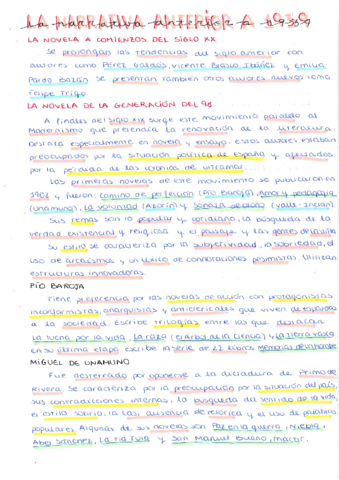 La narrativa anterior a 1939
LA NOVELA A COMIENZOS DEL SIGLO XX
Se prolongan las tendencias del siglo anterior con
autores como Pérez Galdós, Vicente Blasco Ibáñez y Emilia
Pardo Bazán. Se presentan también otros autores nuevos como
Felipe Trigo.
LA NOVELA DE LA GENERACIÓN DEL 98
A finales del siglo XIX surge este movimiento paralelo al
Modernismo que pretendía la renovación de la literatura.
Destaca especialmente en novela y ensayo. Estos autores estaban
preocupados por la situación política de España y afectados
por la pérdida de las colonias de ultramar.
Las primeras novelas de este movimiento se publicaron en
1902 y fueron: Camino de perfección (Pío Baroja), Amor y pedagogía
(Unamuno), La voluntad (Azorín) y Sonata de otoño (Valle-Inclán)
Sus temas son lo popular y cotidiano, la búsqueda de la
verdad existencial y religiosa y el paisaje y las gentes de Castilla
Su estilo se caracteriza por la subjetividad, la sobriedad, el
uso de arcaísmos y un léxico de connotaciones pesimistas. Utilizan
estructuras innovadoras.
PÍO BAROJA
Tiene preferencia por las novelas de acción con protagonistas
inconformistas, anarquistas y anticlericales que viven de espaldas
a la sociedad. Escribe trilogías entre las que destacan
La lucha por la vida, La raza (El Árbol de la Ciencia) y La tierra vasca
en su última etapa escribe la serie de 22 libros Memorias de un hombre
MIGUEL DE UNAMUNO
Fue desterrado por oponerse a la dictadura de Primo de
Rivera. Se caracteriza por la preocupación por la situación del país,
sus contradicciones internas, la búsqueda del sentido de la vida,
el estilo sobrio, la casi ausencia de retórica y el uso de palabras
populares. Algunas de sus novelas son Paz en la guerra, Niebla,
Abel Sánchez, La tía Tula y San Manuel Bueno, mártir.